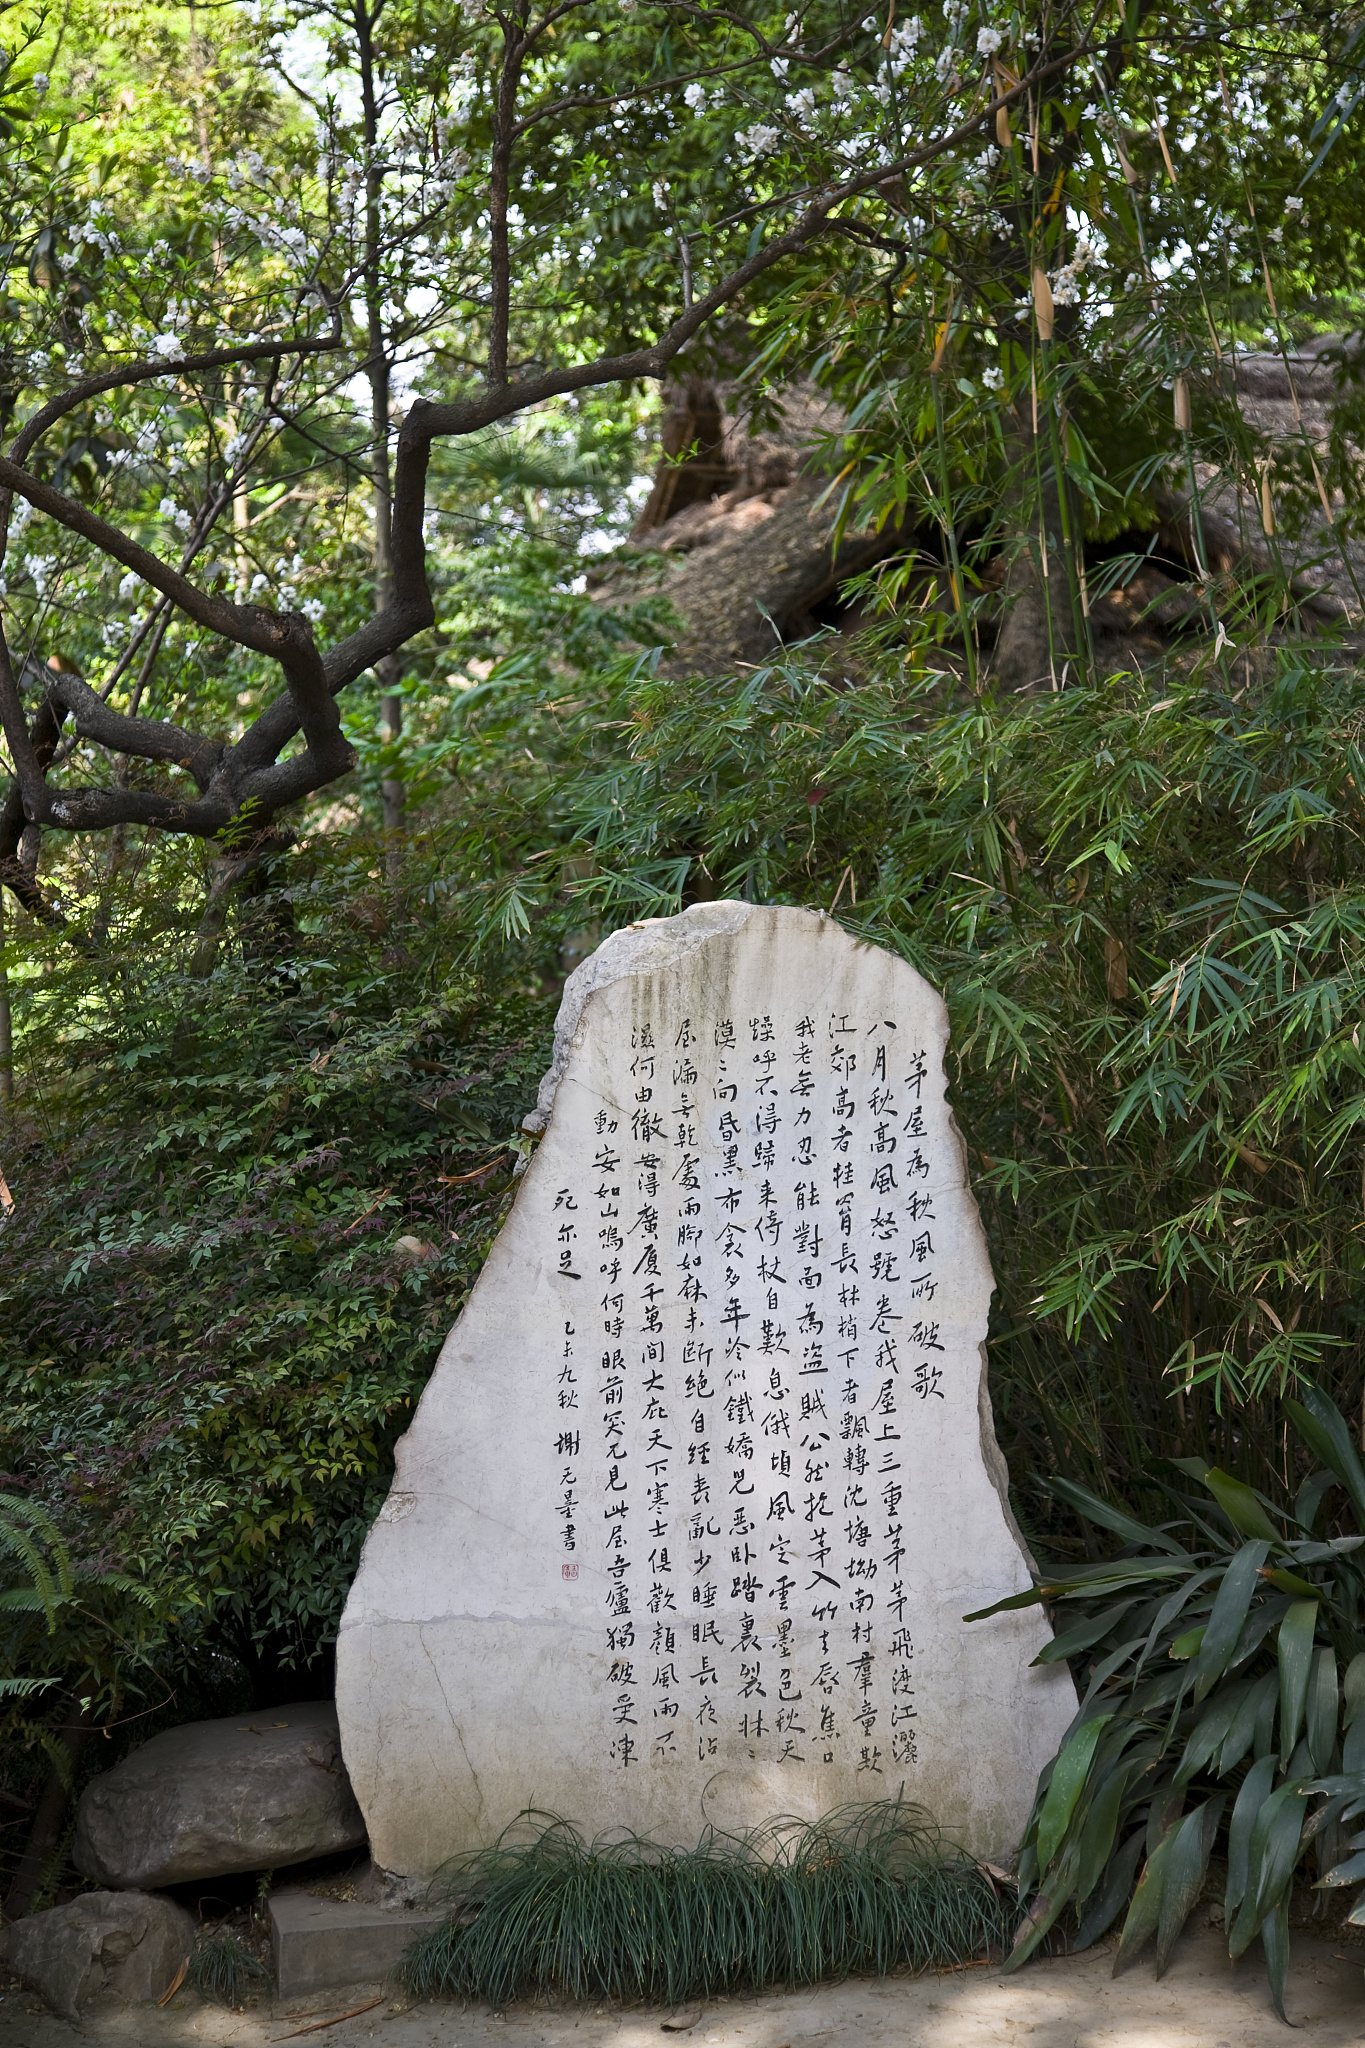 茅屋為秋風所破歌
八月秋高風怒號卷我屋上三重茅茅飛渡江灑
江郊高者挂罥長林梢下者飄轉沈塘坳南村羣童欺
我老無力忍能對面為盜賊公然抱茅入竹去唇焦口
燥呼不得歸来倚杖自歎息俄頃風定雲墨色秋天
漠〻向昏黑布衾多年冷似鐵嬌兒惡卧踏裏裂牀〻
屋漏無乾處雨脚如麻未斷絶自經喪亂少睡眠長夜沾
濕何由徹安得廣厦千萬間大庇天下寒士俱歡顔風雨不
動安如山嗚呼何時眼前突兀見此屋吾廬獨破受凍
死亦足
乙未九秋 謝无量書